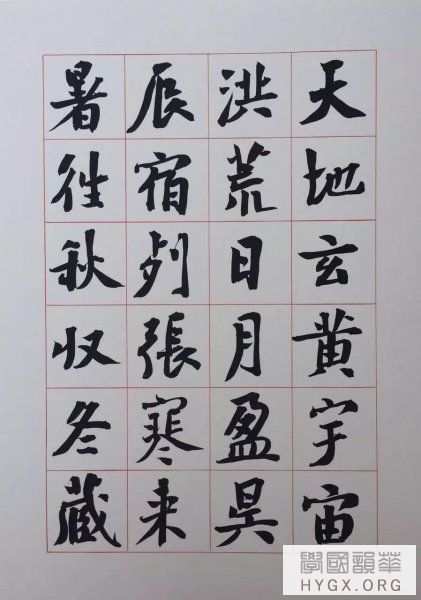 天地玄黄宇宙
洪荒日月盈昃
辰宿列張寒来
暑往秋収冬蔵
華韻國學
HYGX.ORG